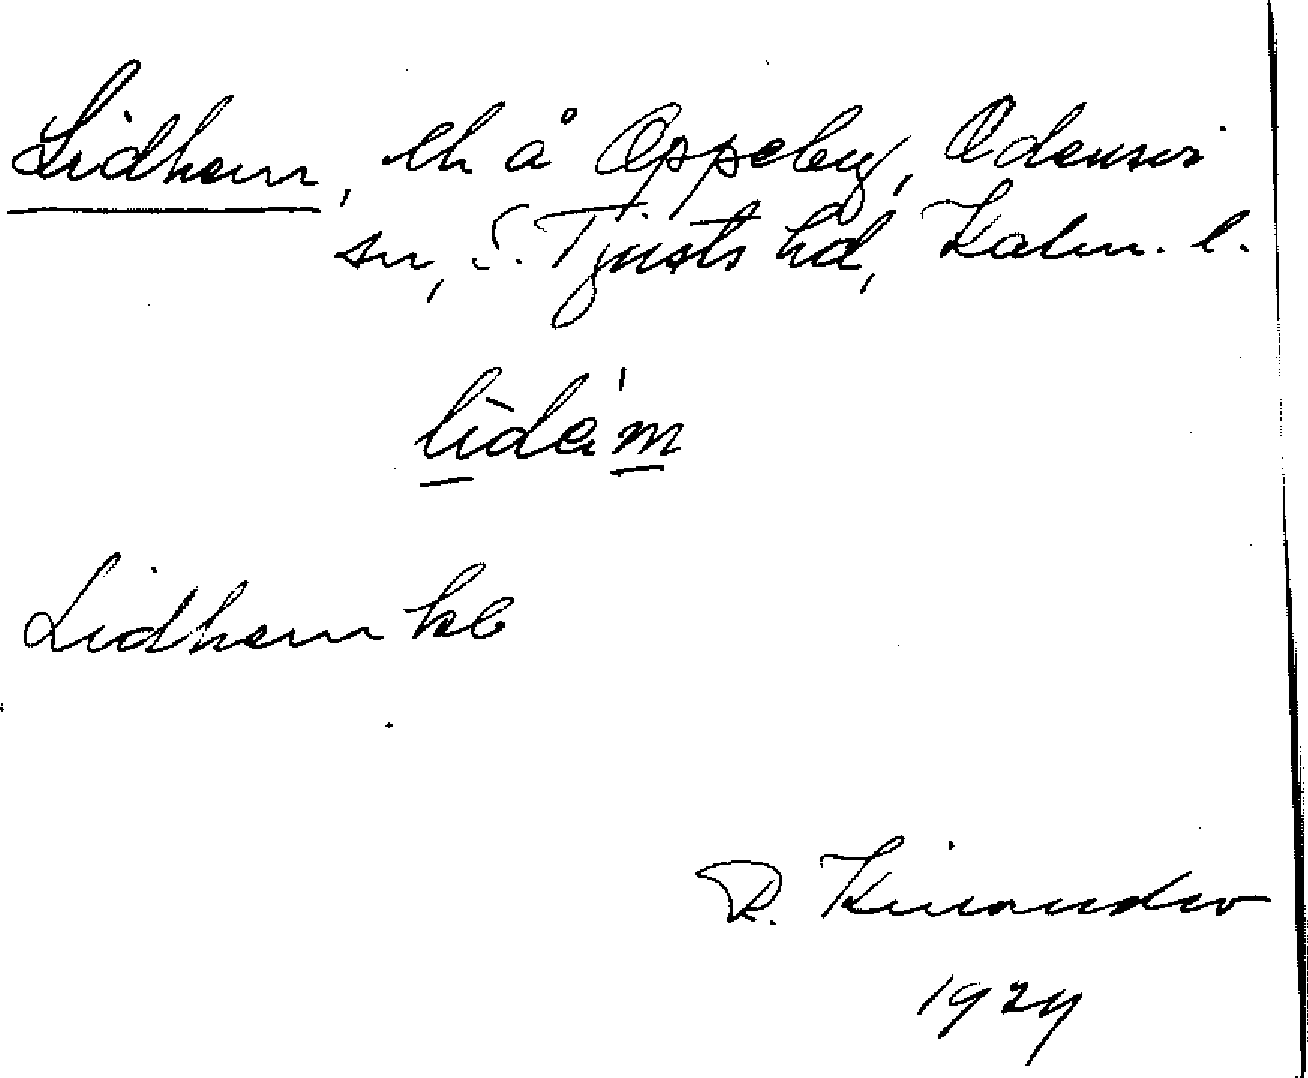 Lidhem, lh å Öppeby, Odensvi
sn, S. Tjusts hd, Kalm. l.
lìde'm
Lidhem kb
R. Kinander
1929